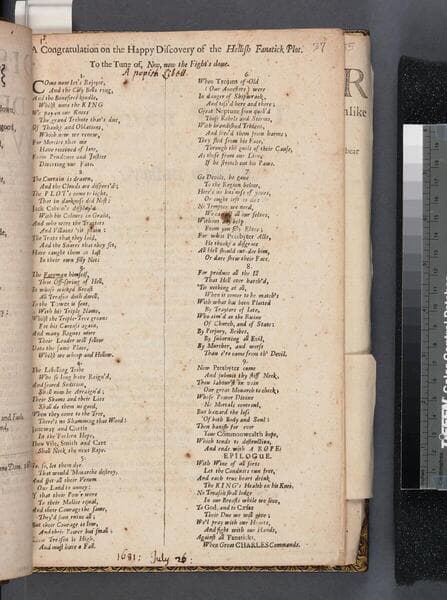 A Congratulation on the Happy Discovery of the Hellish Fanatick Plot.
37
To the Tune of, Now, now the Fight's done.
A popish Libell.
1.
Come now let's Rejoyce,
And the City Bells ring,
And the Bonefires kindle,
Whilst unto the KING
We pay on our Knees
The grand Tribute that's due,
Of Thanks and Oblations,
Which now we renew
For Mercies that we
Have received of late,
From Prudence and Justice
Directing our Fate.
2.
The Curtain is drawn,
And the Clouds are dispers'd;
The PLOT's come to light,
That in darkness did Nest:
Jack Calvin's display'd
With his Colours in Grain,
And who were the Traytors
And Villains 'tis plain:
The Traps that they laid,
And the Snares that they set,
Have caught them at last
In their own silly Net.
3.
The Foreman himself,
That Off-spring of Hell,
In whose wicked Breast
All Treasons doth dwell,
To the Tower is sent,
With his Triple Name,
Whilst the Triple-Tree groans
For his Carcase again,
And many Rogues more
Their Leader will follow
Into the same Place,
Whilst we whoop and Hollow.
4.
The Libelling Tribe
Who so long have Raign'd,
And scared Sedition,
Shall now be Arraign'd;
Their Shams and their Lies
Shall do them no good,
When they come to the Tree,
There's no Shamming that Wood:
and Curtis
In the Forlorn Hope,
Then Vile, Smith and Care
Shall Neck the next Rope.
5.
To see, let them dye
That would Monarchs destroy,
And spit all their Venom
Our Land to annoy:
If that their Pow'r were
To their Malice equal,
And their Courage the same,
They'd soon ruine all;
But their Courage is low,
And their Power but small;
Treason is High,
And must have a Fall.
6.
When Trojans of Old
(Our Ancestors) were
In danger of Shipwrack,
And toss'd here and there;
Great Neptune soon quel'd
Those Rebels and Storms,
With brandished Trident,
And free'd them from harms;
They fled from his Face,
Through the guilt of their Cause,
As those from our Lion,
If he stretch out his Paws.
7.
Go Devils, be gone
To the Region below,
Here's no business of yours,
Or ought left to do:
No Tempter we need,
We can do it our selves,
Without help
From you silly Elves;
For what Presbyter Acts,
He thinks a disgrace
All Hell should out-doe him,
Or dare shew their Face.
8.
For produce all the Ill
That Hell ever hatch'd,
'Tis nothing at all,
When it comes to be match'd
With what has been Plotted
By Traytors of Late,
Who aim'd at the Ruine
Of Church, and of State:
By Perjury, Bribes,
By suborning all Evil,
By Murther, and worse
Than e're came from th' Devil.
9.
Now Presbyter come
And submit thy stiff Neck,
Thou labour'st in vain
Our great Monarch to check;
Whose Power Divine
No Mortals controul,
But hazard the loss
Of both Body and Soul:
Then banish for ever
Your Commonwealth hope,
Which tends to destruction,
And ends with A ROPE.
EPILOGUE.
With Wine of all sorts
Let the Conduits run free,
And each true heart drink
The KING's Health on his Knee.
No Treason shall lodge
In our Breasts while we live,
To God, and to Cæsar
Their Due we will give;
We'l pray with our Hearts,
And fight with our Hands,
Against all Fanaticks,
When Great CHARLES Commands.
1681: July 26: